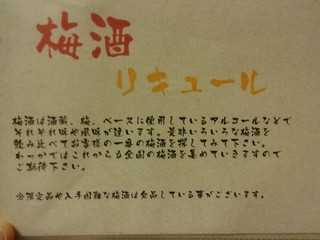 梅酒
リキュール
梅酒は酒蔵、梅、ベースに使用しているアルコールなどで
それぞれ味や風味が違います。是非いろいろな梅酒を
飲み比べてお客様の一番の梅酒を探してみて下さい。
わっかではこれからも全国の梅酒を集めていきますので
ご期待下さい。
全限定品や入手困難な梅酒は欠品している事がございます。